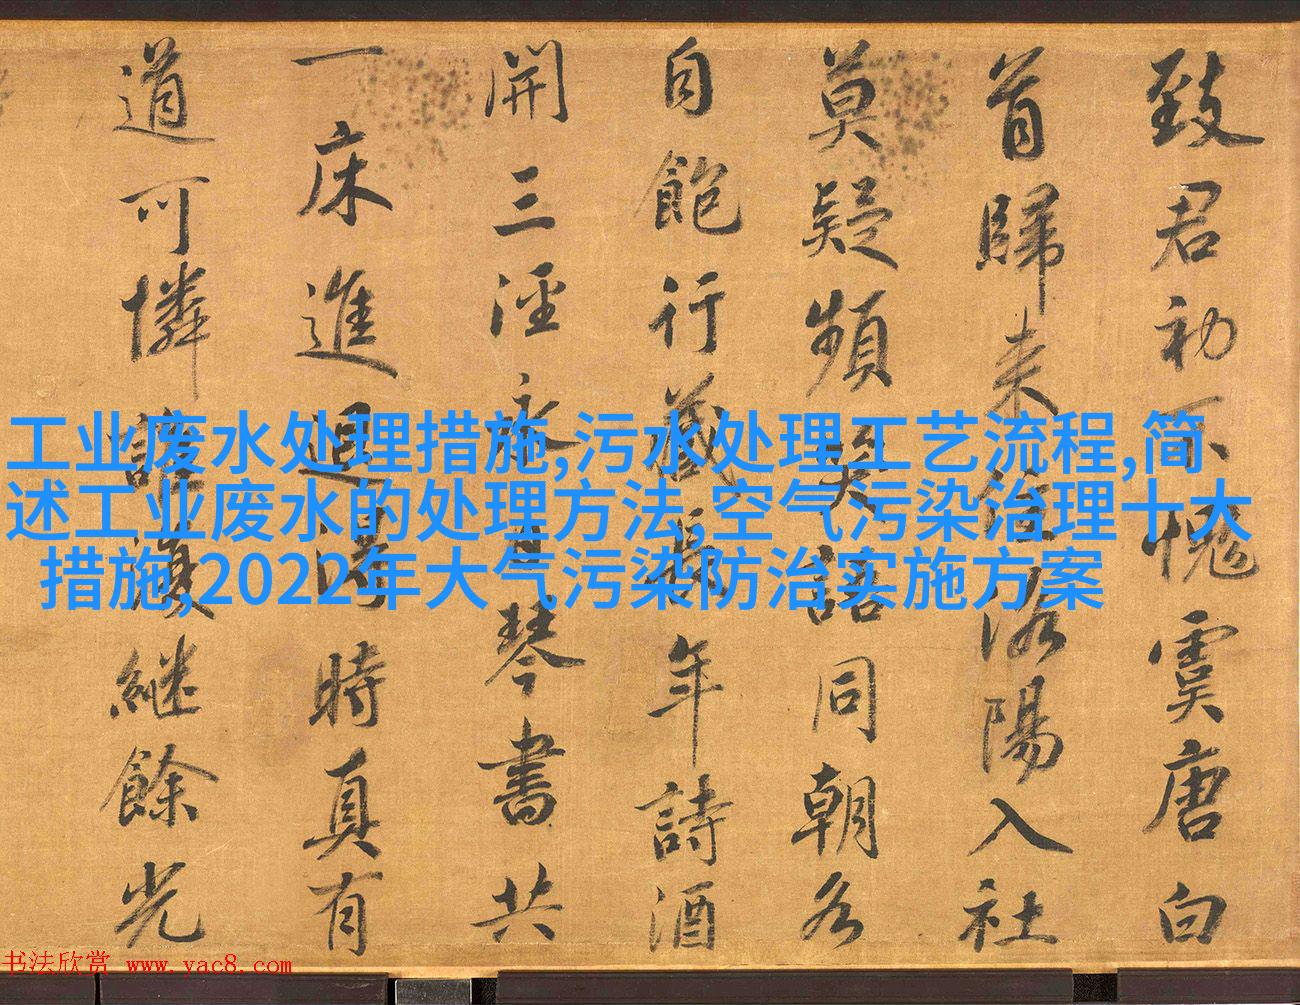 致君初不愧虞唐白
首歸来住洛陽入社
莫疑頻笑語同朝各
自飽行藏長年詩酒
開三涇永日琴書共
一床進時真有
道可憐誰復継餘光
工业废水处理措施,污水处理工艺流程,简
述工业废水的处理方法,空气污染治理十大
措施,2022年大气污染防治实施方案
书法欣赏 www.yac8.com